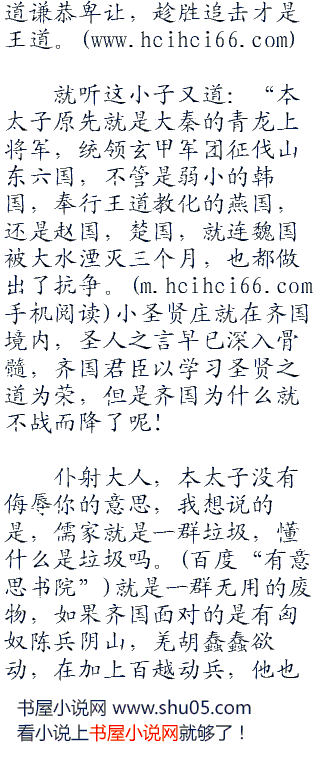 道谦恭卑让，趁胜追击才是
王道。(www.hcihci66.com)
就听这小子又道：“本
太子原先就是大秦的青龙上
将军，统领玄甲军团征伐山
东六国，不管是弱小的韩
国，奉行王道教化的燕国，
还是赵国，楚国，就连魏国
被大水湮灭三个月，也都做
出了抗争。(m.hcihci66.com
手机阅读)小圣贤庄就在齐国
境内，圣人之言早已深入骨
髓，齐国君臣以学习圣贤之
道为荣，但是齐国为什么就
不战而降了呢！
仆射大人，本太子没有
侮辱你的意思，我想说的
是，儒家就是一群垃圾，懂
什么是垃圾吗。(百度“有意
思书院”)就是一群无用的废
物，如果齐国面对的是有匈
奴陈兵阴山，羌胡蠢蠢欲
动，在加上百越动兵，他也
书屋小说网 www.shu05.com
看小说上书屋小说网就够了！